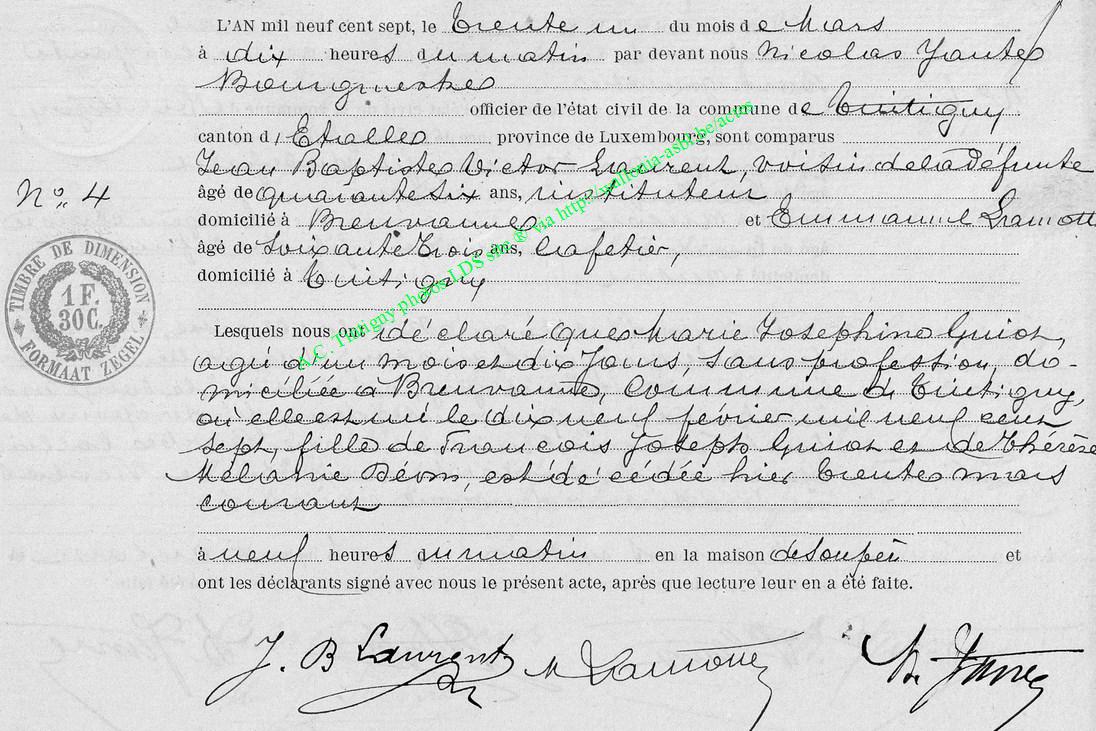 L'AN mil neuf cent sept, le trente un du mois de Mars
à dix heures du matin par devant nous Nicolas
Bourgmestre
officier de l'état civil de la commune de Tintigny
canton d'Etalle province de Luxembourg, sont comparus
Jean Baptiste Victor Laurent, voisin de la défunte
N° 4
âgé de quarante six ans, instituteur
domicilié à Breuvanne et Emmanuel Lamotte
âgé de soixante trois ans, Cafetier,
domicilié à Tintigny
TIMBRE DE DIMENSION
1 F.
30 C.
FORMAAT ZEGEL
A.C. Tintigny photos LDS snc ® via http://wallonia-asbl.be/actus
Lesquels nous ont déclaré que Marie Josephine Guiot,
agée d'un mois et dix jours, sans profession, do-
miciliée à Breuvanne, commune de Tintigny,
où elle est née le dix neuf février mil neuf cent
sept, fille de François Joseph Guiot et de Thérèse
Mélanie est décédée hier trente mars
courant
à neuf heures du matin en la maison de son père et
ont les déclarants signé avec nous le présent acte, après que lecture leur en a été faite.
J. B Laurent Lamotte